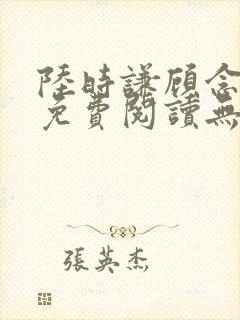 陸時謙顧念
免費閱讀無
張英杰